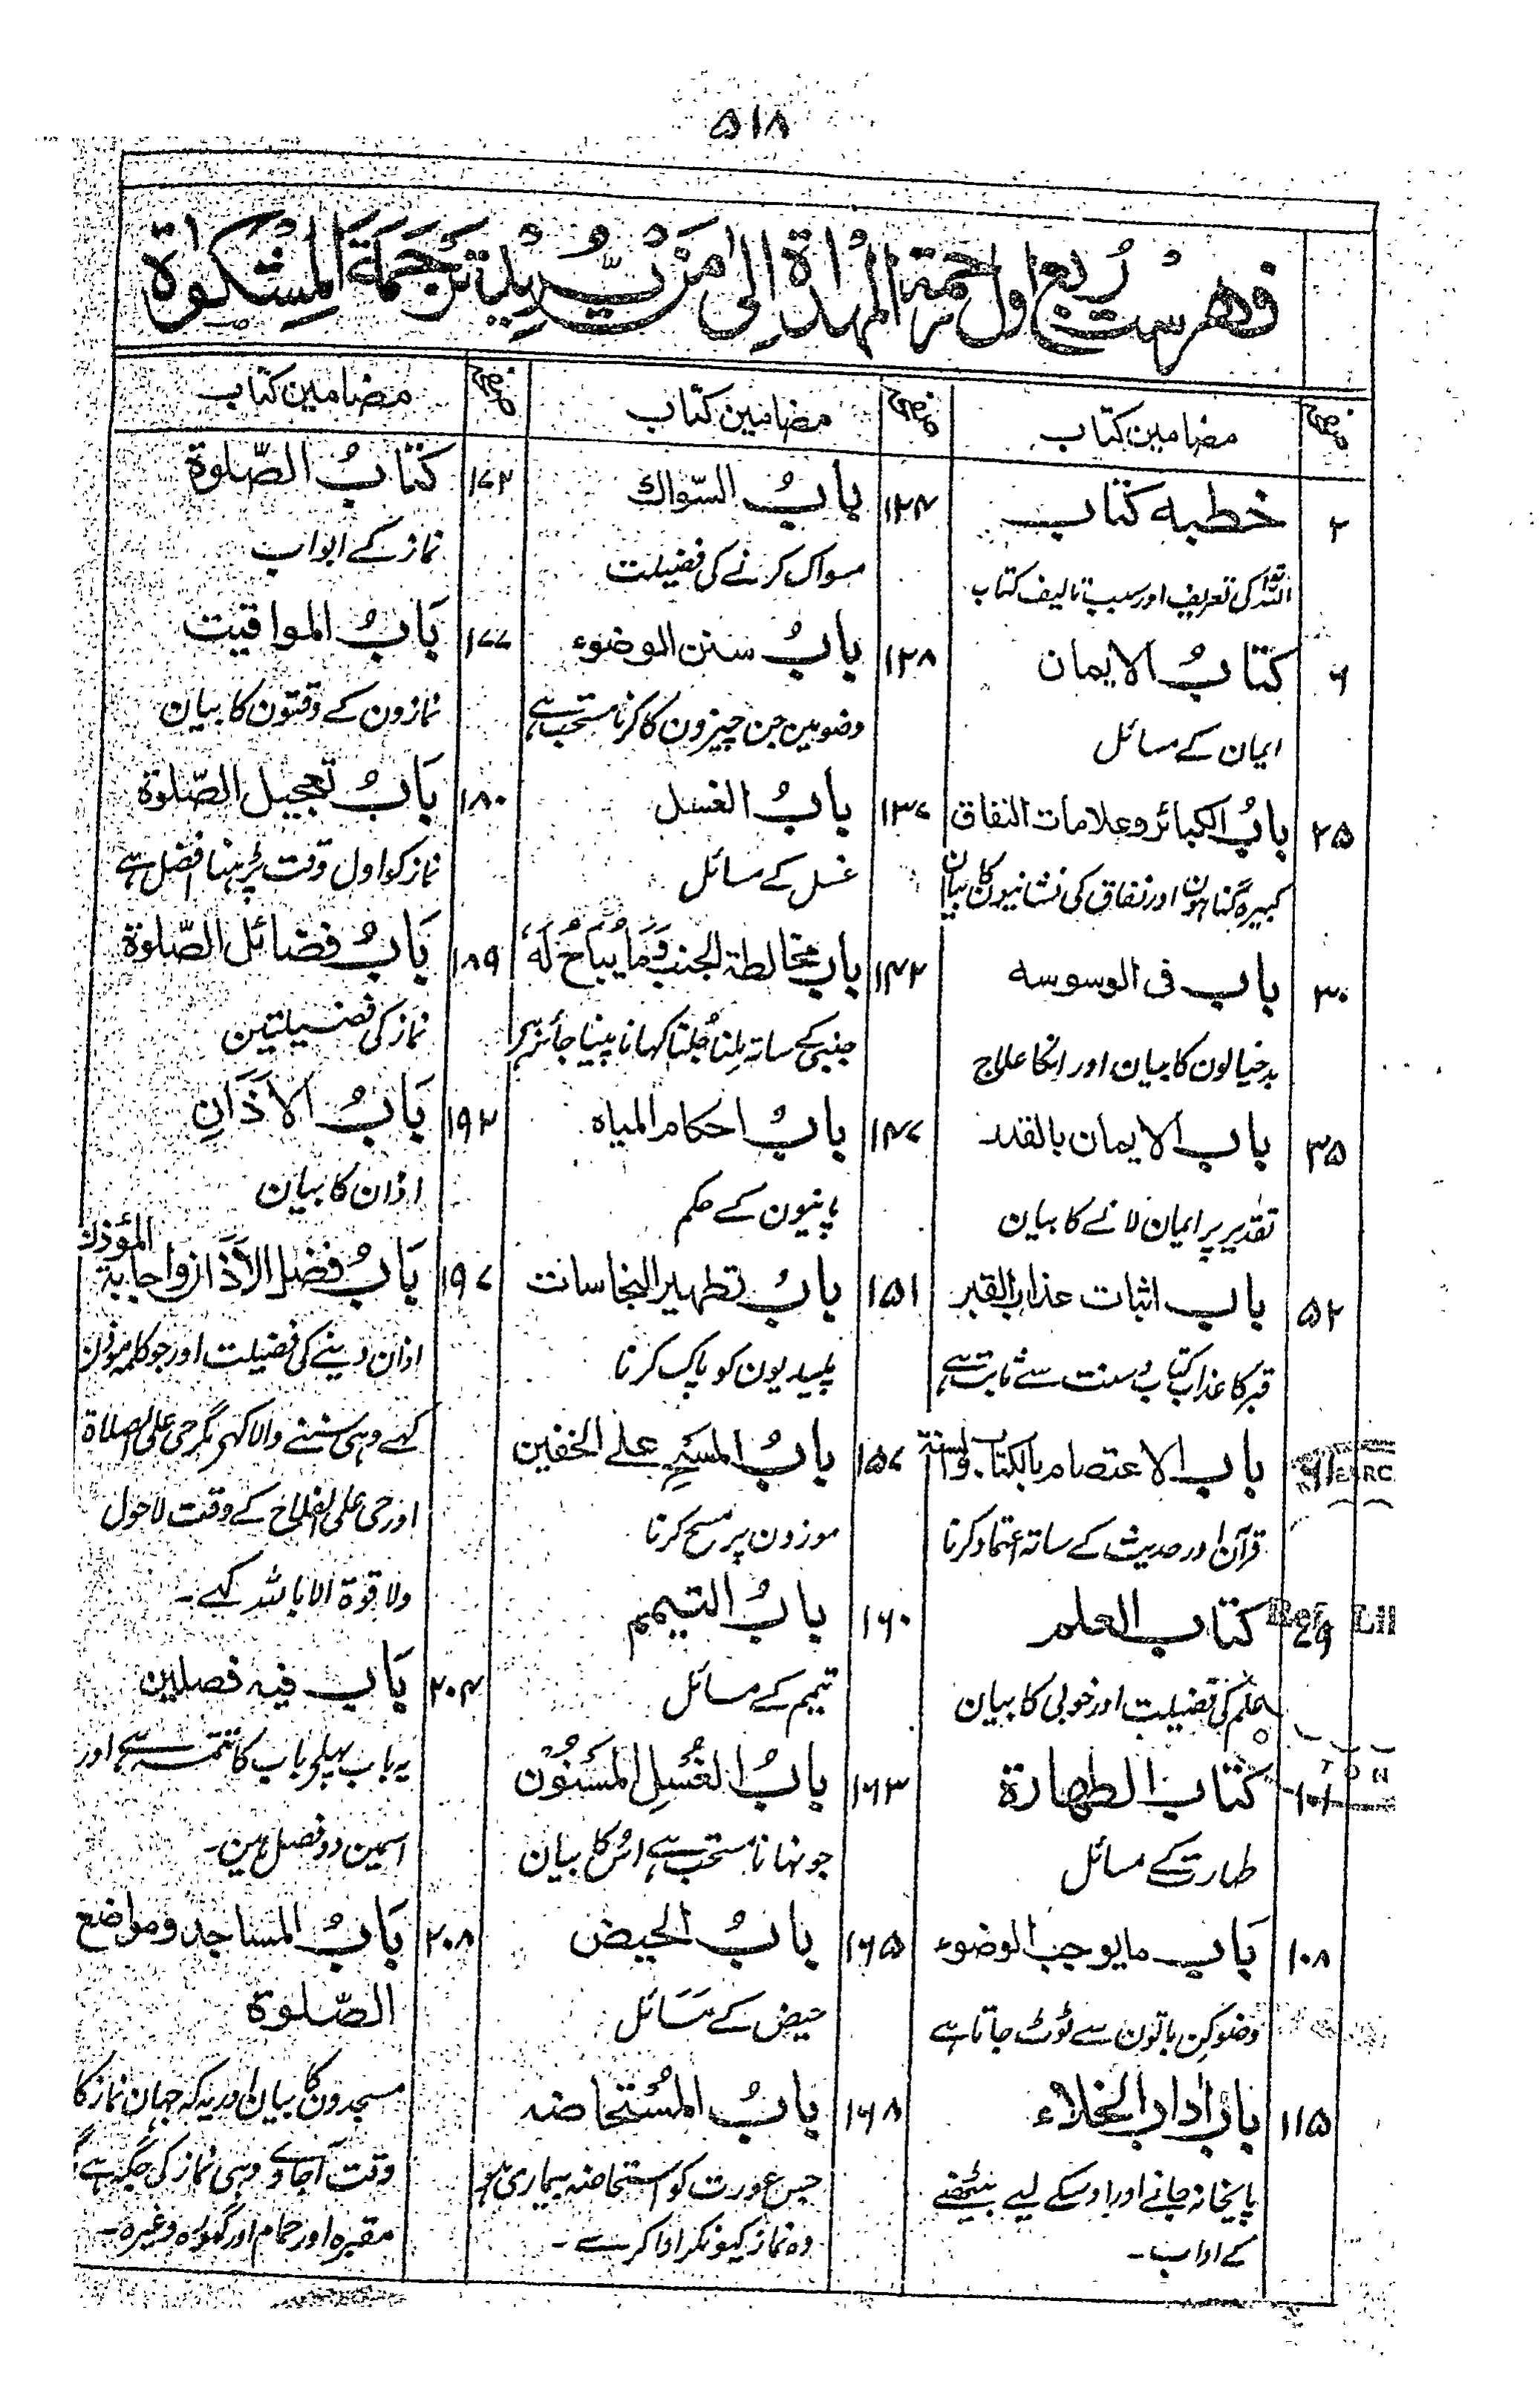 ۵۱۸
فهرست ربع اول رحمة المهداة الى من يريد ترجمة المشكوة
صفحہ
مضامین کتاب
۲ خطبه کتاب
اللہ تعالیٰ کی تعریف اور سبب تالیف کتاب
۶ كتابُ الايمان
ایمان کے مسائل
۲۵ بابُ الكبائر وعلامات النفاق
کبیرہ گناہون اور نفاق کی نشانیون کا بیان
۳۰ باب فی الوسوسه
بد خیالون کا بیان اور انکا علاج
۳۵ باب الايمان بالقدر
تقدیر پر ایمان لانے کا بیان
۵۲ باب اثبات عذاب القبر
قبر کا عذاب کتاب و سنت سے ثابت ہے
۶۱ باب الاعتصام بالكتاب والسنة
قرآن اور حدیث کے ساتہ اعتماد کرنا
۷۹ كتاب العلم
علم کی فضیلت اور خوبی کا بیان
۱۰۱ كتاب الطهارة
طہارت کے مسائل
۱۰۸ بَاب مايوجب الوضوء
وضو کن باتون سے ٹوٹ جاتا ہے
۱۱۵ باب آداب الخلاء
پایخانہ جانے اور اوسکے لیے بیٹھنے
کے اداب۔
صفحہ
مضامین کتاب
۱۲۴ بابُ السّواك
مسواک کرنے کی فضیلت
۱۲۸ بابُ سنن الموضوء
وضو مین جن چیزون کا کرنا مستحب ہے
۱۳۷ بابُ الغسل
غسل کے مسائل
۱۴۲ باب مخالطة الجنب وَمَا يُبَاحُ لَهُ
جنبی کے ساتہ ملنا جُلنا کہانا پینا جائز ہے
۱۴۷ بابُ احكام المياه
پانیون کے حکم
۱۵۱ بابُ تطهير النجاسات
پلیدیون کو پاک کرنا
۱۵۷ بابُ المسح علے الخفين
موزون پر مسح کرنا
۱۶۰ بابُ التيمم
تیمم کے مسائل
۱۶۳ بابُ الغُسلِ المَسنُوْن
جو نہانا مستحب ہے اسُ کا بیان
۱۶۵ بابُ الحيض
حیض کے مَسَائل
۱۶۸ بابُ المُستحاضه
جس عورت کو استحاضہ بیماری ہو
وہ نماز کیونکر ادا کرے۔
صفحہ
مضامین کتاب
۱۷۲ كتابُ الصّلوة
نماز کے ابواب
۱۷۷ بَابُ المواقيت
نمازون کے وقتون کا بیان
۱۸۰ بَابُ تعجيل الصّلوة
نماز کو اول وقت پڑہنا افضل ہے
۱۸۹ بَابُ فضائل الصّلوة
نماز کی فضیلتین
۱۹۲ بَابُ الاَذَانِ
اذان کا بیان
۱۹۷ بَابُ فضل الاَذَان واجابة المؤذن
اذان دینے کی فضیلت اور جو کلمہ موذن
کہے وہی سننے والا کہے مگر حی علی الصلاة
اور حی علی الفلاح کے وقت لا حول
ولا قوة الا باللہ کہے۔
۲۰۴ بَاب فيه فصلين
یہ باب پہلے باب کا تتمہ ہے اور
اسمین دو فصل ہین۔
۲۰۸ بَابُ المساجد ومواضع
الصّلوة
مسجدون کا بیان اور یہ کہ جہان نماز کا
وقت آجاوے وہی نماز کی جگہ ہے
مقبرہ اور حمام اور گہوڑہ وغیرہ۔